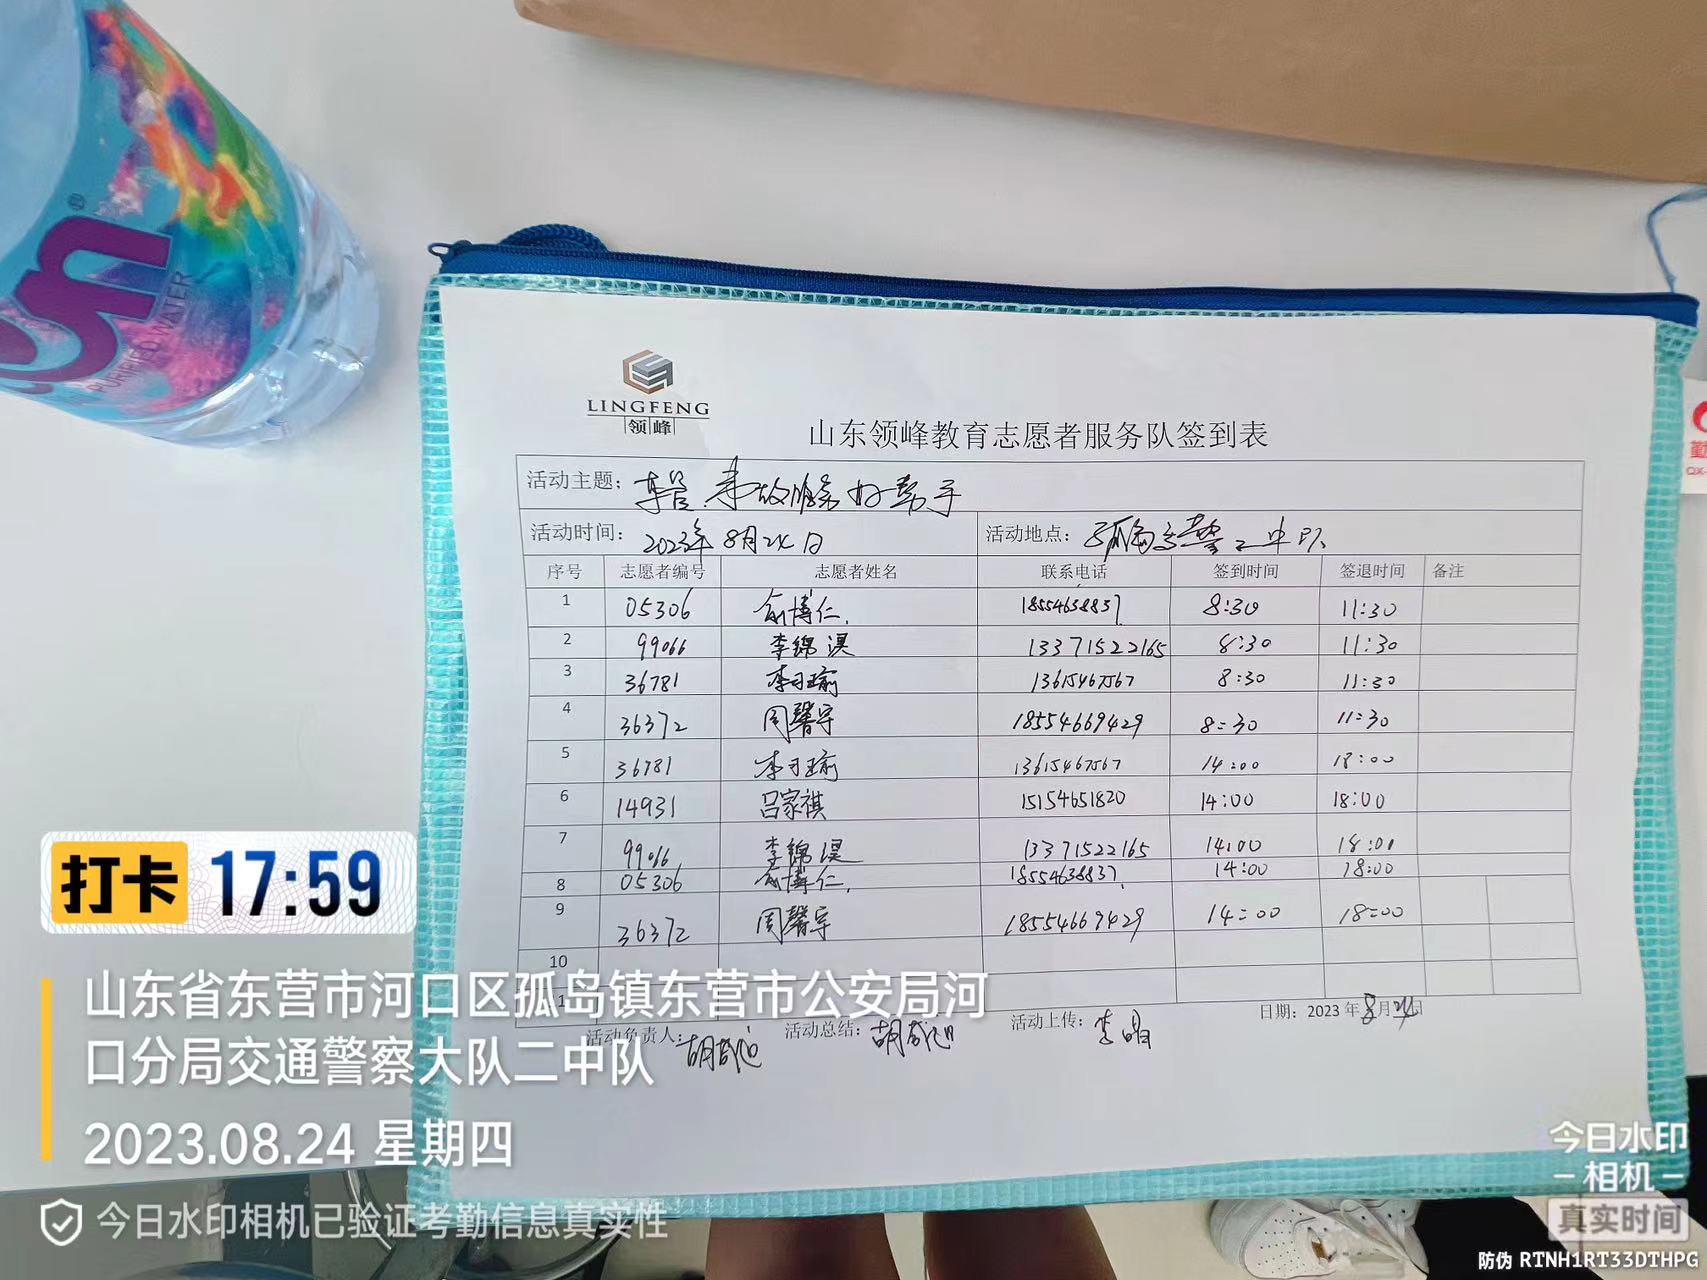 sn®
PURIFIED WATER
LINGFENG
领峰
山东领峰教育志愿者服务队签到表
活动主题：车管.事故 好帮手
活动时间： 2023年8月24日 活动地点： 孤岛交警二中队
序号 志愿者编号 志愿者姓名 联系电话 签到时间 签退时间 备注
1 05306 俞博仁. 18554638837 8:30 11:30
2 99066 李锦淏 13371522165 8:30 11:30
3 36781 李子瑜 13615467567 8:30 11:30
4 36372 周馨宇 18554669429 8:30 11:30
5 36781 李子瑜 13615467567 14:00 18:00
6 14931 吕家祺 15154651820 14:00 18:00
7 99066 李锦淏 13371522165 14:00 18:00
8 05306 俞博仁. 18554638837 14:00 18:00
9 36372 周馨宇 18554669429 14:00 18:00
10
日期：2023年8月24日
活动负责人： 活动总结： 活动上传：
打卡 17:59
山东省东营市河口区孤岛镇东营市公安局河
口分局交通警察大队二中队
2023.08.24 星期四
今日水印相机已验证考勤信息真实性
今日水印
相机
真实时间
防伪 RTNH1RT33DTHPG